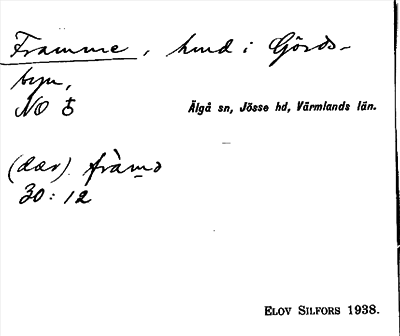 Framme, hmd i Görds-
byn,
NO 5
Älgå sn, Jösse hd, Värmlands län.
(dær) fràmə
30:12
ELOV SILFORS 1938.